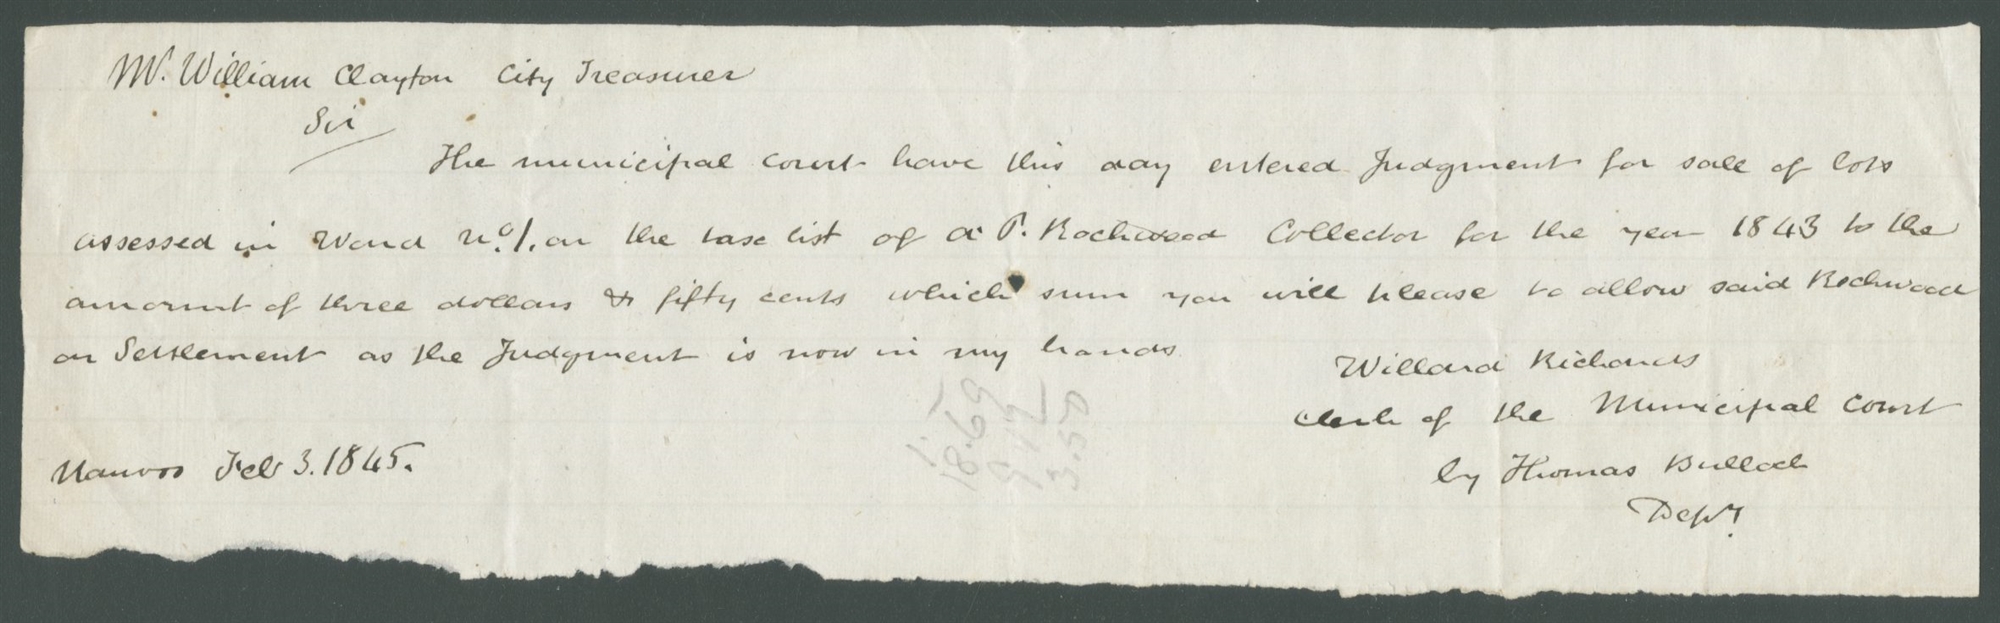 Mr. William Clayton City Treasurer
Sir
The municipal court have this day entered Judgment for sale of lots
assessed in Ward No. 1. on the tax list of A P. Rockwood Collector for the year 1843 to the
amount of three dollars & fifty cents which sum you will please to allow said Rockwood
on Settlement as the Judgment is now in my hands
Willard Richards
Clerk of the Municipal Court
by Thomas Bullock
Depy.
Nauvoo Feb 3. 1845.
18.69
9.12
3.50